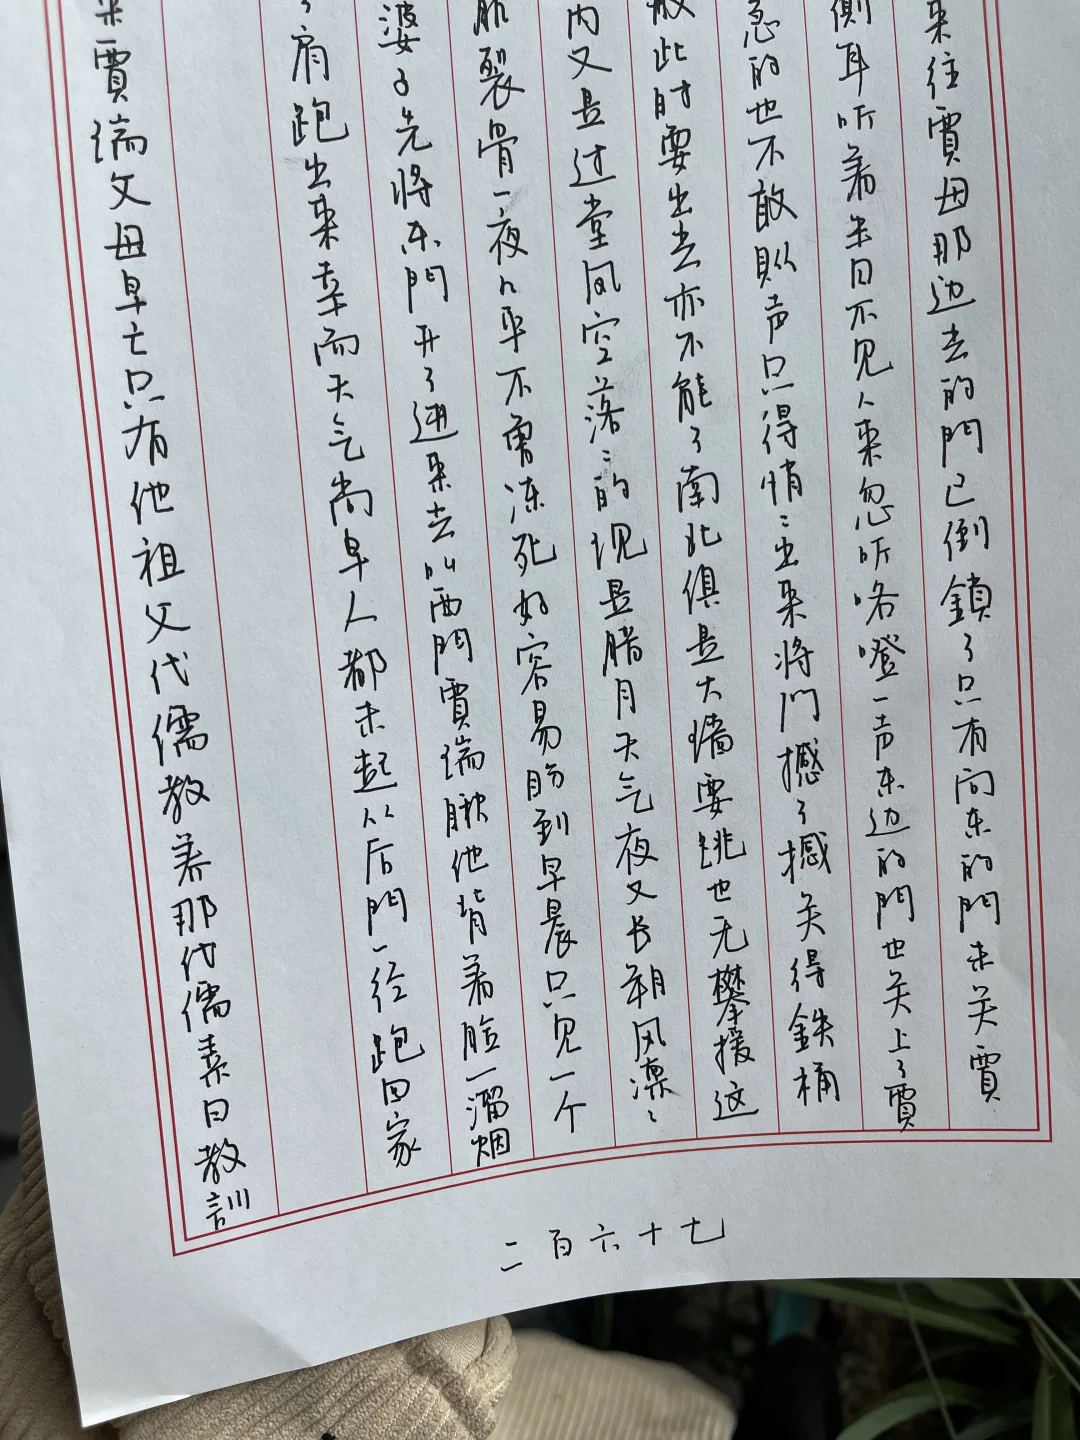 来往賈母那边去的門已倒鎖了只有向东的門未关賈
側耳听着半日不见人来忽听咯噔一声东边的門也关上了賈
急的也不敢则声只得悄〻出来将门撼了撼关得鉄桶
般此时要出去亦不能了南北俱是大墙要跳也无攀援这
内又是过堂风空落〻的现是腊月天气夜又长朔风凛〻
肌裂骨一夜几乎不曾冻死好容易盼到早晨只见一个
婆子先将东門开了进来去叫西門賈瑞瞅他背着脸一溜烟
肩跑出来幸而天气尚早人都未起从后門一径跑回家
来賈瑞父母早亡只有他祖父代儒教养那代儒素日教訓
二百六十七